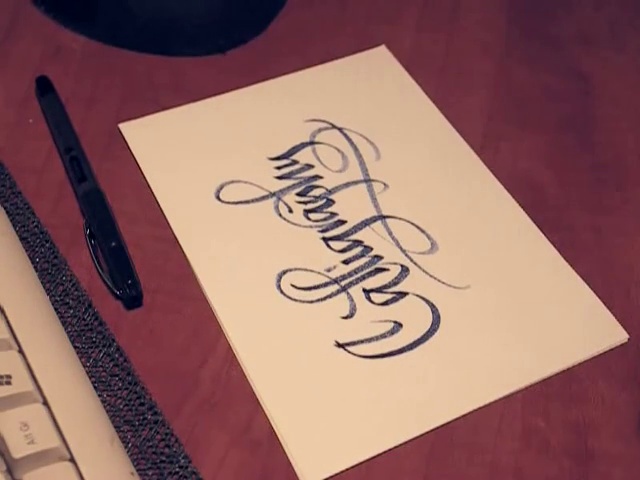 Calligraphy
Alt Gr